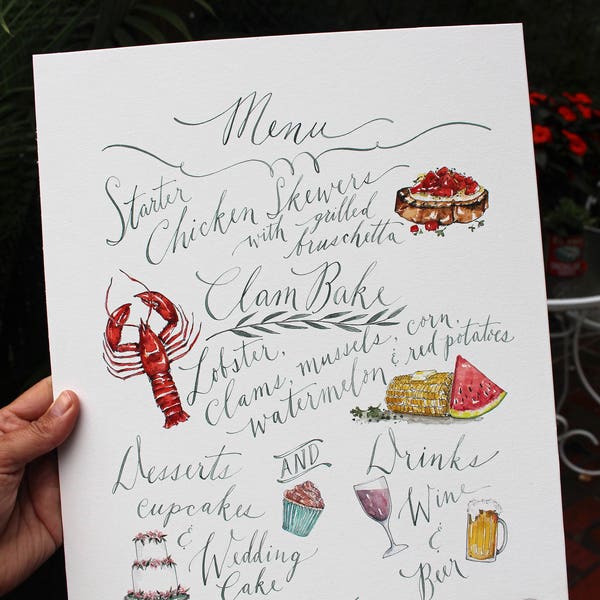 Menu
Starter
Chicken Skewers
with grilled
bruschetta
Clam Bake
Lobster,
clams, mussels, corn,
watermelon & red potatoes
Desserts
cupcakes
&
Wedding
Cake
AND
Drinks
Wine
&
Beer